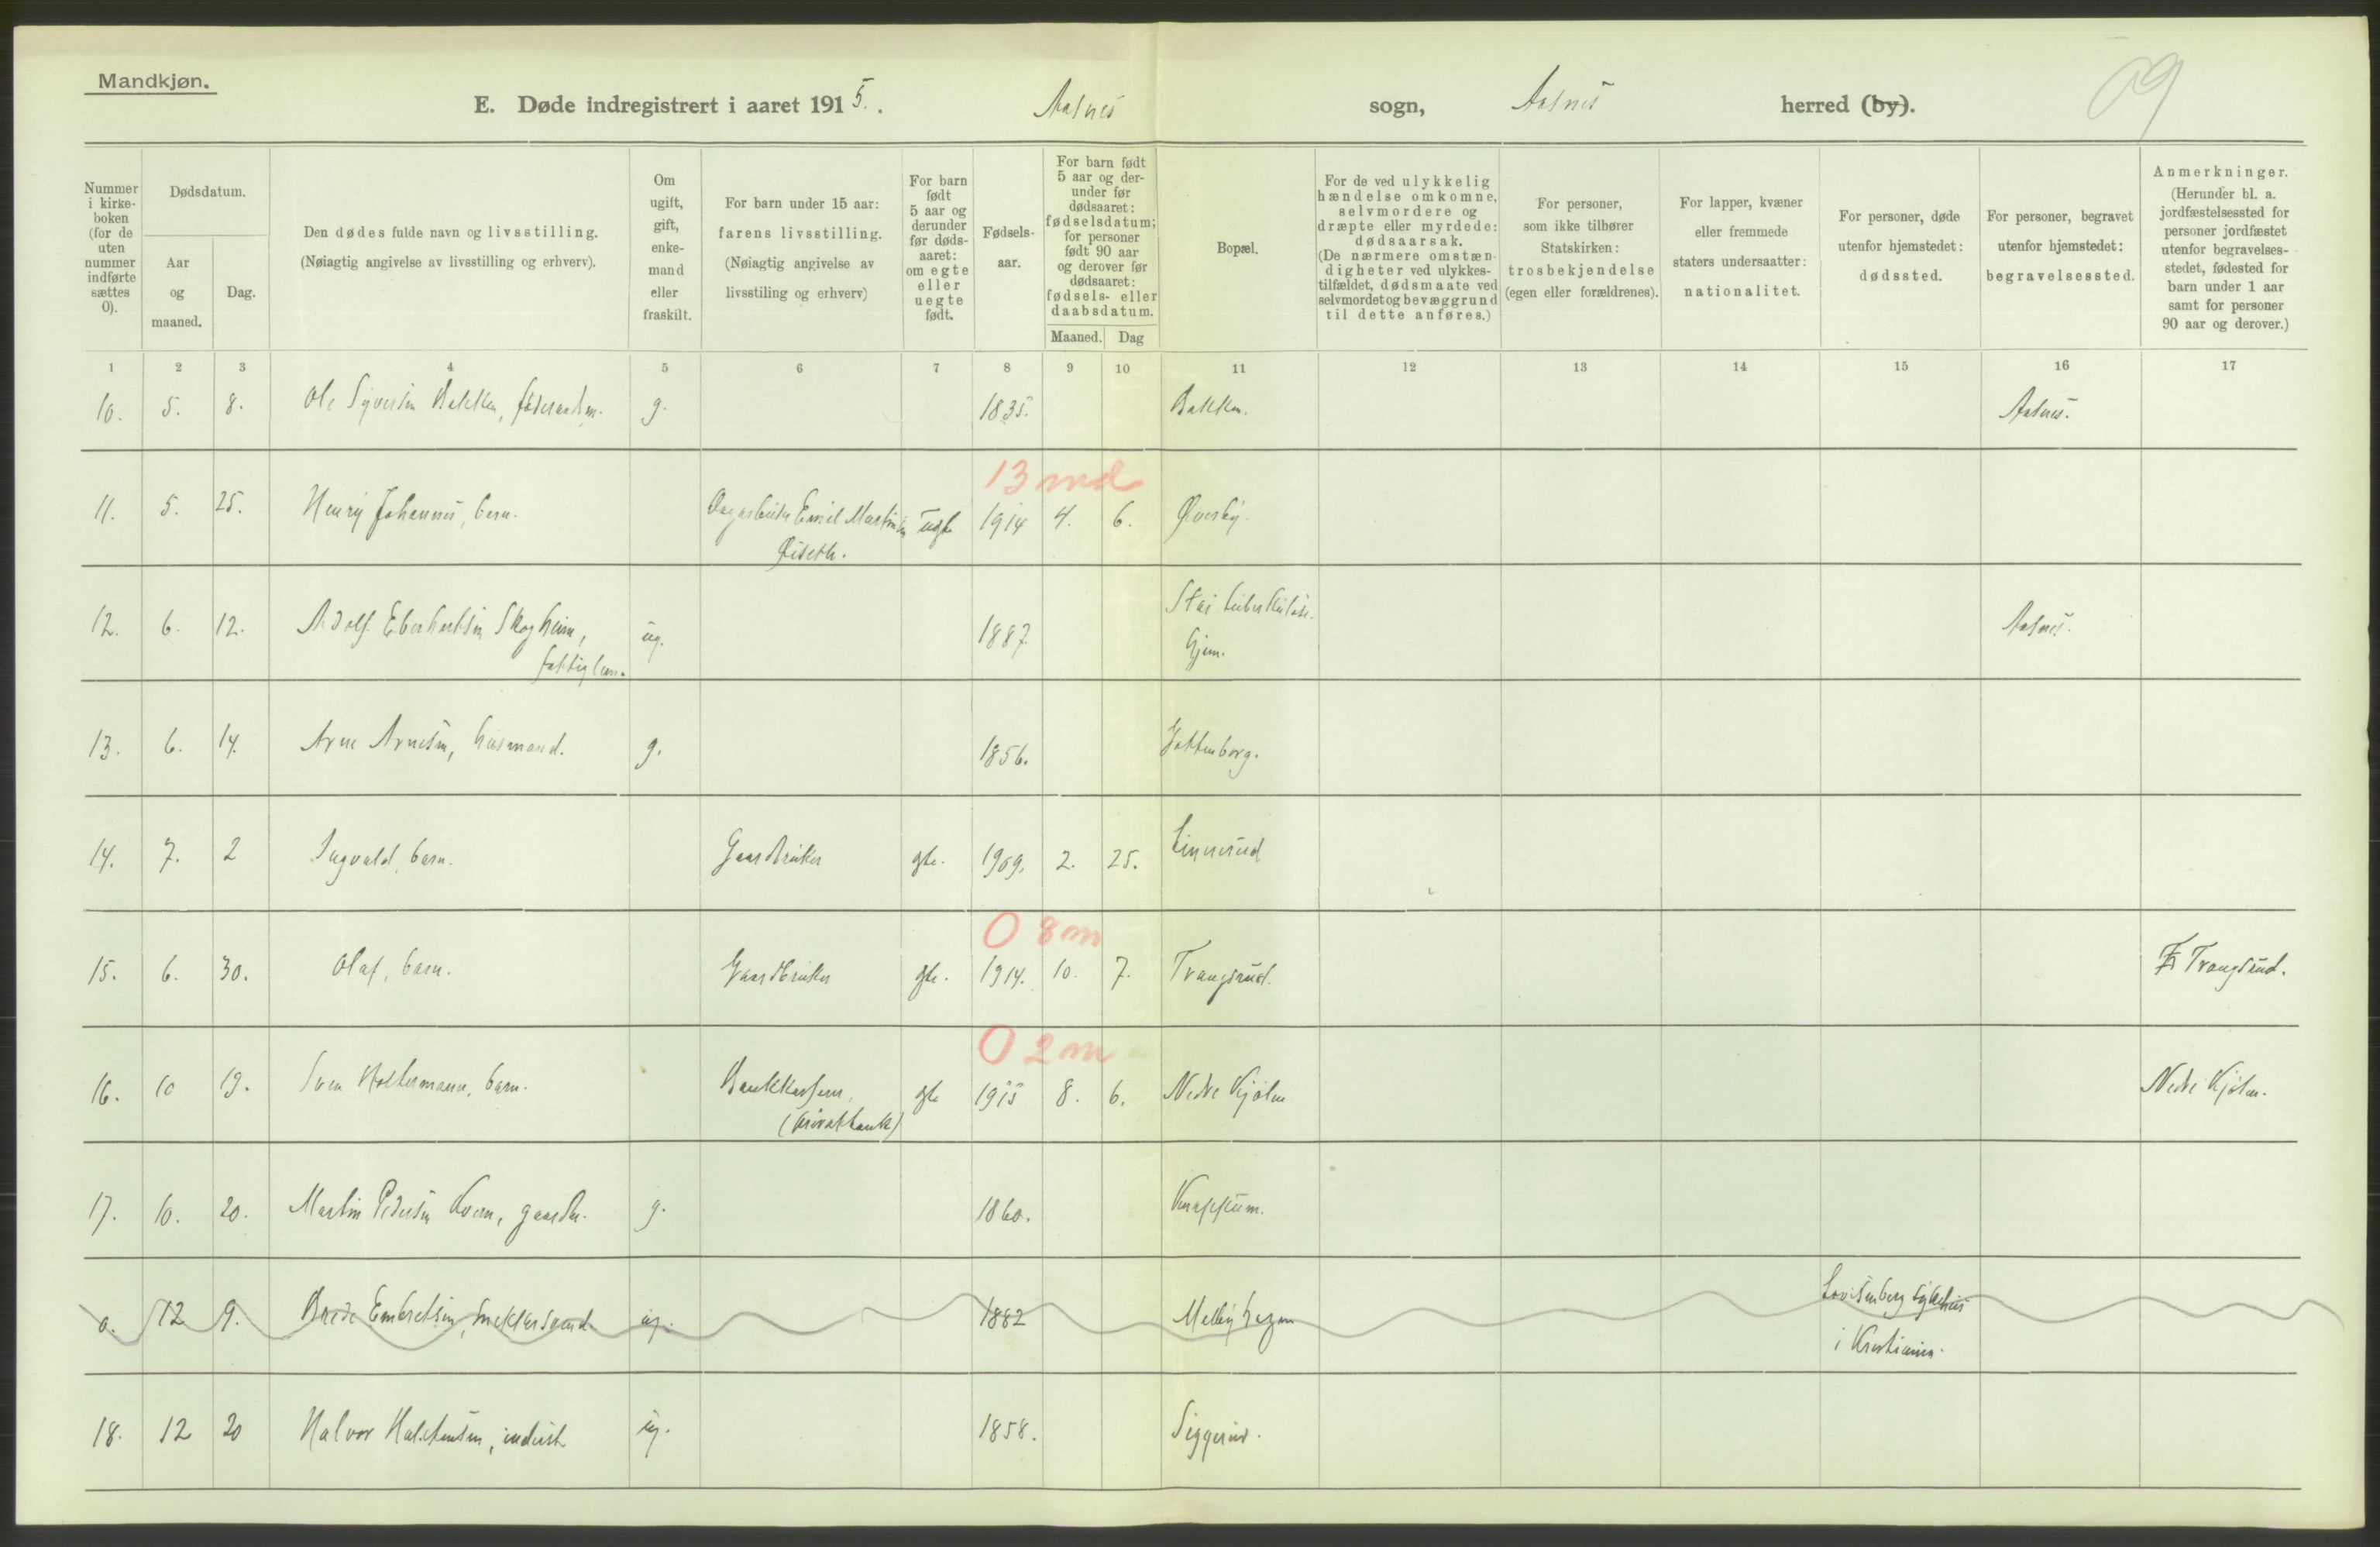 Mandkjøn.
E. Døde indregistrert i aaret 1915. Aasnes sogn, Aasnes herred (by).
09
Nummer i kirkeboken (for de uten nummer indførte sættes 0).
Dødsdatum.
Aar og maaned.
Dag.
Den dødes fulde navn og livsstilling.
(Nøiagtig angivelse av livsstilling og erhverv).
Om ugift, gift, enkemand eller fraskilt.
For barn under 15 aar:
farens livsstilling.
(Nøiagtig angivelse av livsstiling og erhverv)
For barn født 5 aar og derunder før dødsaaret: om egte eller uegte født.
Fødselsaar.
For barn født 5 aar og derunder før dødsaaret: fødselsdatum; for personer født 90 aar og derover før dødsaaret: fødsels- eller daabsdatum.
Maaned. Dag
Bopæl.
For de ved ulykkelig hændelse omkomne, selvmordere og dræpte eller myrdede: dødsaarsak.
(De nærmere omstændigheter ved ulykkestilfældet, dødsmaate ved selvmordet og bevæggrund til dette anføres.)
For personer, som ikke tilhører Statskirken: trosbekjendelse (egen eller forældrenes).
For lapper, kvæner eller fremmede staters undersaatter: nationalitet.
For personer, døde utenfor hjemstedet: dødssted.
For personer, begravet utenfor hjemstedet: begravelsessted.
Anmerkninger.
(Herunder bl. a. jordfæstelsessted for personer jordfæstet utenfor begravelsesstedet, fødested for barn under 1 aar samt for personer 90 aar og derover.)
1 2 3 4 5 6 7 8 9 10 11 12 13 14 15 16 17
10. 5. 8. Ole Syversen Bakken, føderaadsm. g. 1835. Bakken. Aasnes.
13 md
11. 5. 25. Henry Johannes, barn. Emil Martinsen uegte 1914 4. 6. Øverby.
Øiseth.
12. 6. 12. Adolf Eberhartsen Skogheim, ug. 1887. Stai tuberkulose- Aasnes.
fattiglem. hjem.
13. 6. 14. Arne Arnesen, husmand. g. 1856.
14. 7. 2 Ingvald, barn. Gaardbruker gte. 1909. 2. 25. Linnerud
0 8 m
15. 6. 30. Olaf, barn. Gaardbruker gte. 1914. 10. 7. Trangsrud. Trangsrud.
0 2 m
16. 10 19. Sven Holtermann, barn. Bankkasserer, gte 1915 8. 6. Nedre Kjølen Nedre Kjølen.
(privatbank)
17. 10. 20. Martin Pedersen Kvern, gaardbr. g. 1860. Knappum.
0. 12 9. Brede Embretsen, ug. 1882 Mellbyhagen Lovisenberg sykehus
i Kristiania.
18. 12 20 Halvor Halstensen, inderst ug. 1858. Siggerud.